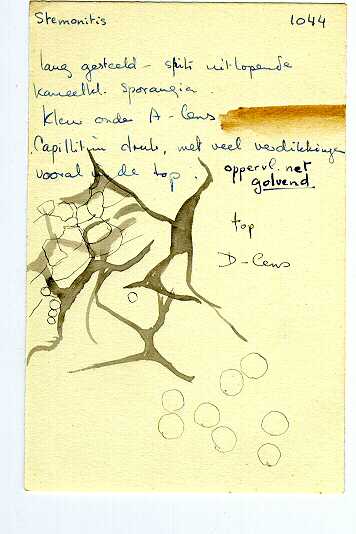 Stemonitis 1044
lang gesteeld - spits uitlopende
kaneelkl. Sporangia.
Kleur onder A-Lens
Capillitium druk, met veel verdikkingen
vooral in de top. oppervl. net
golvend.
top
D-Lens